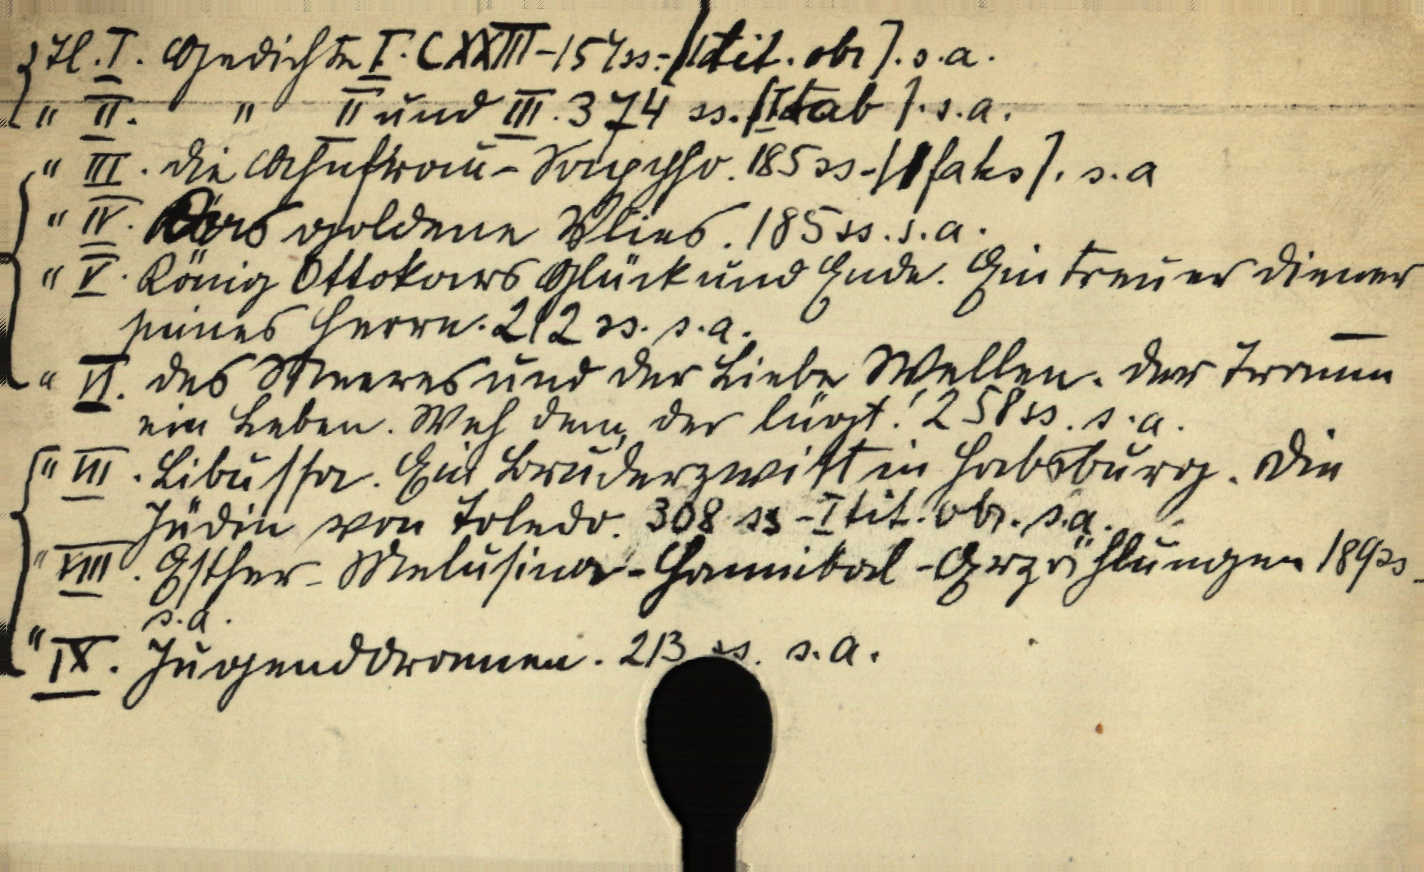 Tl. I. Gedichte I. CXXIII-157ss-[1 tit. obr]. s.a.
" II. " II und III. 374 ss. [I tab]. s.a.
" III. Die Ahnfrau - Sappho. 185ss-[1 faks]. s.a
" IV. Das goldene Vlies. 185ss. s.a.
" V. König Ottokars Glück und Ende. Ein treuer Diener
seines Herrn. 212 ss. s.a.
" VI. Des Meeres und der Liebe Wellen. Der Traum
ein Leben. Weh dem, der lügt! 258ss. s.a.
" VII. Libussa. Ein Bruderzwist in Habsburg. Die
Jüdin von Toledo. 308 ss - I tit. obr. s.a.
" VIII. Esther - Melusina - Hannibal - Erzählungen 189ss -
s.a.
" IX. Jugenddramen. 213 ss. s.a.